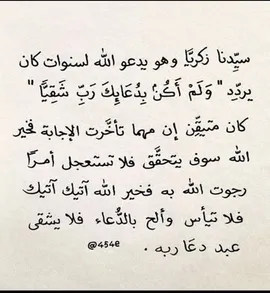 سيِّدنا زكريَّا وهو يدعو الله لسنوات كان
يردِّد " وَلَمْ أَكُنْ بِدُعَائِكَ رَبِّ شَقِيًّا "
كان متيقِّن إن مهما تأخَّرت الإجابة فخير
الله سوف يتحقَّق فلا تستعجل أمرًا
رجوت الله به فخير الله آتيك آتيك
فلا تيأس وألح بالدُّعاء فلا يشقى
عبد دعَا ربه .
@454e